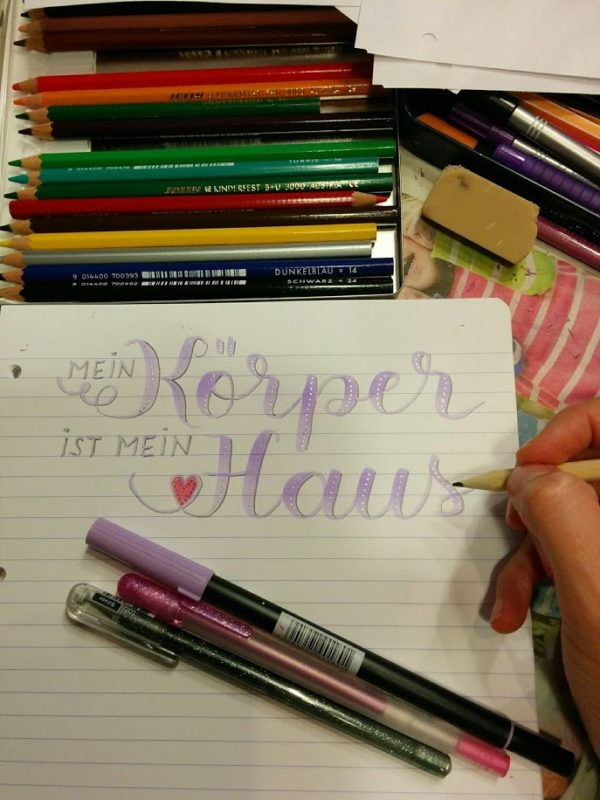 TÜRKIS = 16
18 KINDERFEST B+U 3000 AUSTRIA CE
9 014400 700393 DUNKELBLAU = 14
9 014400 700492 SCHWARZ = 24
MEIN Körper
iST MEIN
Haus